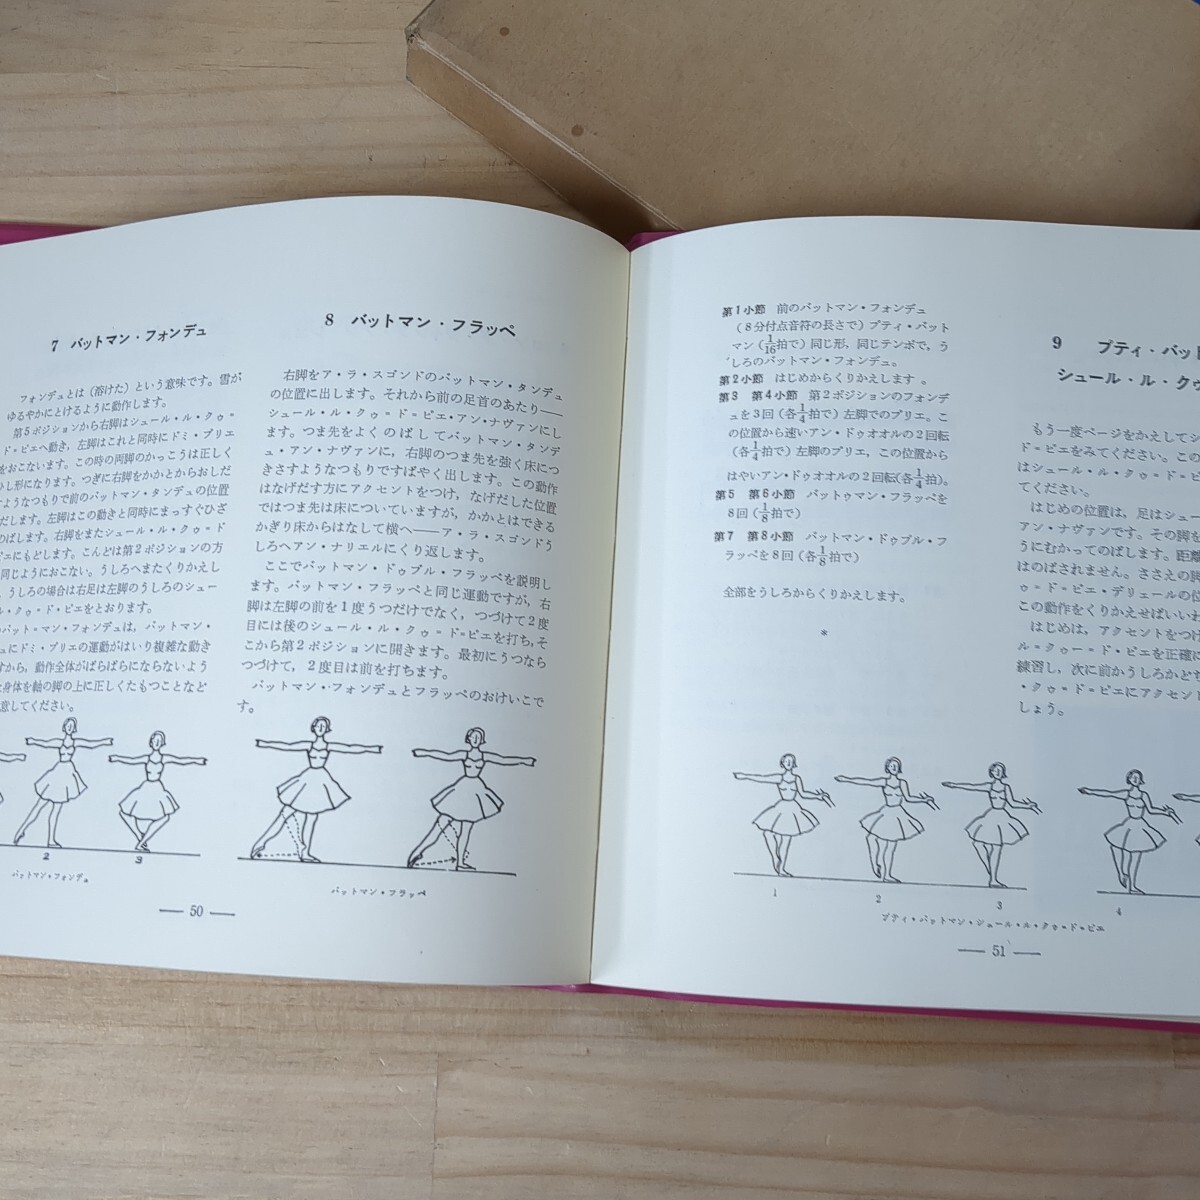 7 バットマン・フォンデュ
フォンデュとは（溶けた）という意味です。雪が
ゆるやかにとけるように動作します。
第5ポジションから右脚はシュール・ル・クゥ=
ド・ピエへ動き，左脚はこれと同時にドミ・プリエ
をおこないます。この時の両脚のかっこうは正しく
ひし形になります。つぎに右脚をかかとからおしだ
すようなつもりで前のバットマン・タンデュの位置
だします。左脚はこの動きと同時にまっすぐひざ
のばします。右脚をまたシュール・ル・クゥ=ド
ピエにもどします。こんどは第2ポジションの方
同じようにおこない。うしろへまたくりかえし
。うしろの場合は右足は左脚のうしろのシュー
ル・クゥ・ド・ピエをとおります。
のバット=マン・フォンデュは，バットマン・
ュにドミ・プリエの運動がはいり複雑な動き
すから，動作全体がばらばらにならないよう
な身体を軸の脚の上に正しくたもつことなど
意してください。
2
3
バットマン・フォンデュ
— 50 —
8 バットマン・フラッペ
右脚をア・ラ・スゴンドのバットマン・タンデュ
の位置に出します。それから前の足首のあたり——
シュール・ル・クゥ=ド=ピエ・アン・ナヴァンにし
ます。つま先をよくのばしてバットマン・タンデ
ュ・アン・ナヴァンに，右脚のつま先を強く床につ
きさすようなつもりですばやく出します。この動作
はなげだす方にアクセントをつけ，なげだした位置
ではつま先は床についていますが，かかとはできる
かぎり床からはなして横へ——ア・ラ・スゴンドう
しろへアン・ナリエルにくり返します。
ここでバットマン・ドゥブル・フラッペを説明し
ます。バットマン・フラッペと同じ運動ですが，右
脚は左脚の前を1度うつだけでなく，つづけて2度
目には後のシュール・ル・クゥ=ド=ピエを打ち，そ
こから第2ポジションに開きます。最初にうつなら
つづけて，2度目は前を打ちます。
バットマン・フォンデュとフラッペのおけいこで
す。
バットマン・フラッペ
第1小節 前のバットマン・フォンデュ
（8分付点音符の長さで）プティ・バット
マン（1/16拍で）同じ形，同じテンポで，う
しろのバットマン・フォンデュ。
第2小節 はじめからくりかえします。
第3 第4小節 第2ポジションのフォンデ
ュを3回（各1/4拍で）左脚でのプリエ。こ
の位置から速いアン・ドゥオオルの2回転
（各1/4拍で）左脚のプリエ，この位置から
はやいアン・ドゥオオルの2回転（各1/4拍）。
第5 第6小節 バットゥマン・フラッペを
8回（1/8拍で）
第7 第8小節 バットマン・ドゥブル・フ
ラッペを8回（各1/8拍で）
全部をうしろからくりかえします。
*
1
2
3
4
プティ・バットマン・シュール・ル・クゥ=ド=ピエ
— 51 —
9 プティ・バット
シュール・ル・クゥ
もう一度ページをかえしてシ
ド=ピエをみてください。この
はシュール・ル・クゥ=ド=ピ
てください。
はじめの位置は，足はシュー
アン・ナヴァンです。その脚を
うにむかってのばします。距離
はのばされません。ささえの脚
ゥ=ド・ピエ・デリェールの位
この動作をくりかえせばいいわ
はじめは，アクセントをつけ
ル=クゥー=ド・ピエを正確に
練習し，次に前かうしろかどち
・クゥ=ド=ピエにアクセント
しょう。